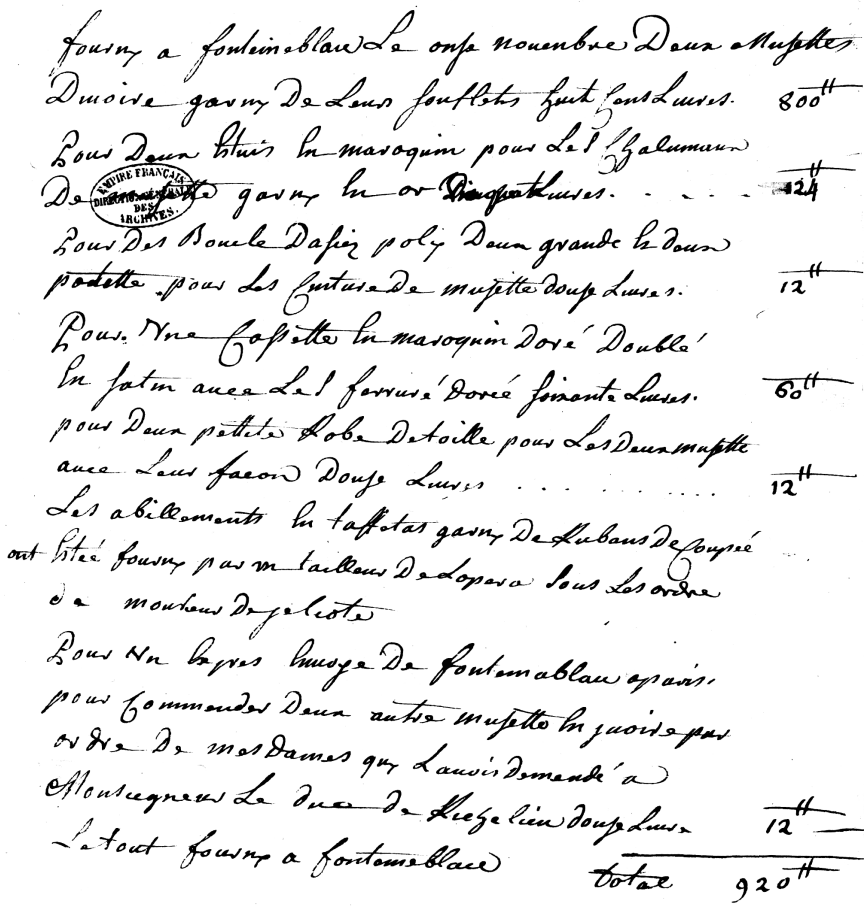 fourny a fonteineblau Le onse nouenbre Deux Musettes
Diuoire garny De Leurs soufflets huit Cens Liures. 800ᴴ
Pour Deux Estuis En maroquin pour Les Chalumaux
De musette garny En or Liures. . . . . 124ᴴ
EMPIRE FRANÇAIS
DIRECTION GÉNÉRALE
DES
ARCHIVES.
Pour Des Boucle Dasiez poly Deux grande En deux
petitte pour Les Cinture De musette douse Liures. 12ᴴ
Pour. Vne Cassette En maroquin Doré Doublé
En satin auec Les ferruré dorée soixante Liures. 60ᴴ
pour Deux pettite Robe De toille pour Les Deux musette
auec Leur facon Douse Liures . . . . . . . . . . 12ᴴ
Les abillements En taffetas garny De Rubans De Coupée
ont Esteé fourny par vn tailleur De Lopera Sous Les ordre
de monsieur De jeliote
Pour Vn Expres Enuoye De fontenablau a paris.
pour Commender Deux autre musette En yuoire par
ordre De mes Dames quy Lauois demendé a
Monseigneur Le duc de Richelieu douse Liure 12ᴴ
Le tout fourny a fonteneblau
total 920ᴴ